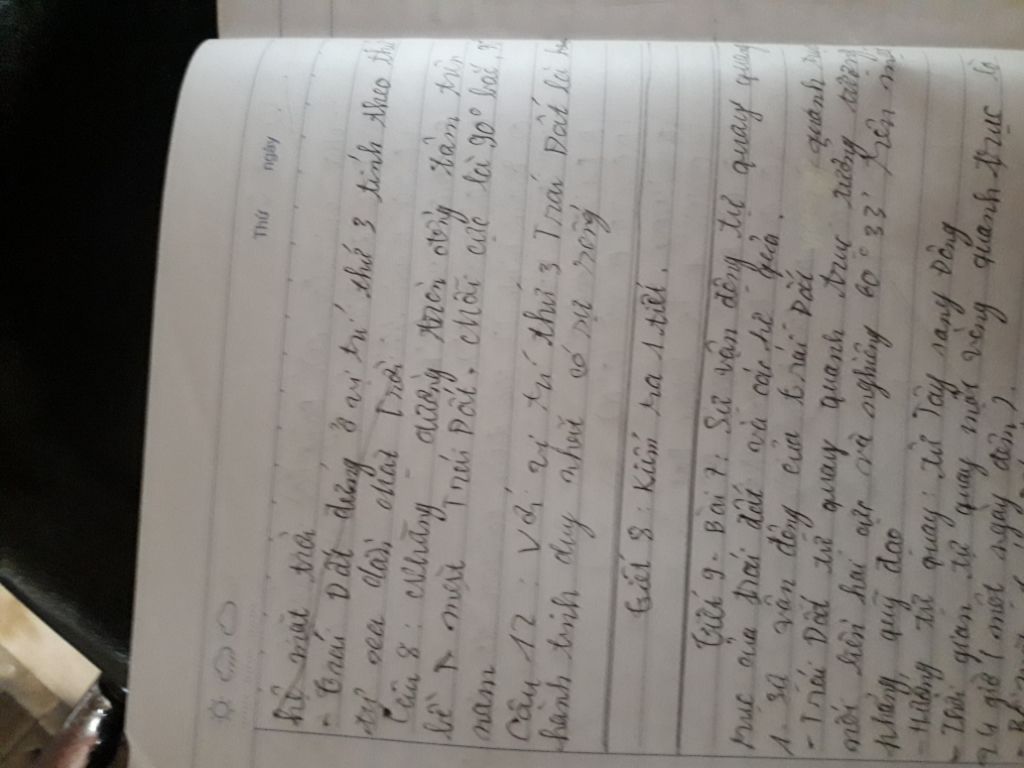 Thứ ngày
hệ mặt trời
- Trái Đất đứng ở vị trí thứ 3 tính theo thứ
tự xa dần mặt Trời.
Câu 8: Những đường tròn đồng tâm trên
bề mặt Trái Đất. Chỗ cực là 90° bắc,
nam
Câu 12: Với vị trí thứ 3 Trái Đất là
hành tinh duy nhất có sự sống
Tiết 8: Kiểm tra 1 tiết.
Tiết 9 - Bài 7: Sự vận động tự quay quanh
trục của trái đất và các hệ quả.
1. Sự vận động của trái Đất quanh
- Trái Đất tự quay quanh trục tưởng tượng
nối liền hai cực và nghiêng 60°33' trên mặt
phẳng quỹ đạo
- Hướng tự quay: từ Tây sang Đông
- Thời gian tự quay một vòng quanh trục là
24 giờ (một ngày đêm)